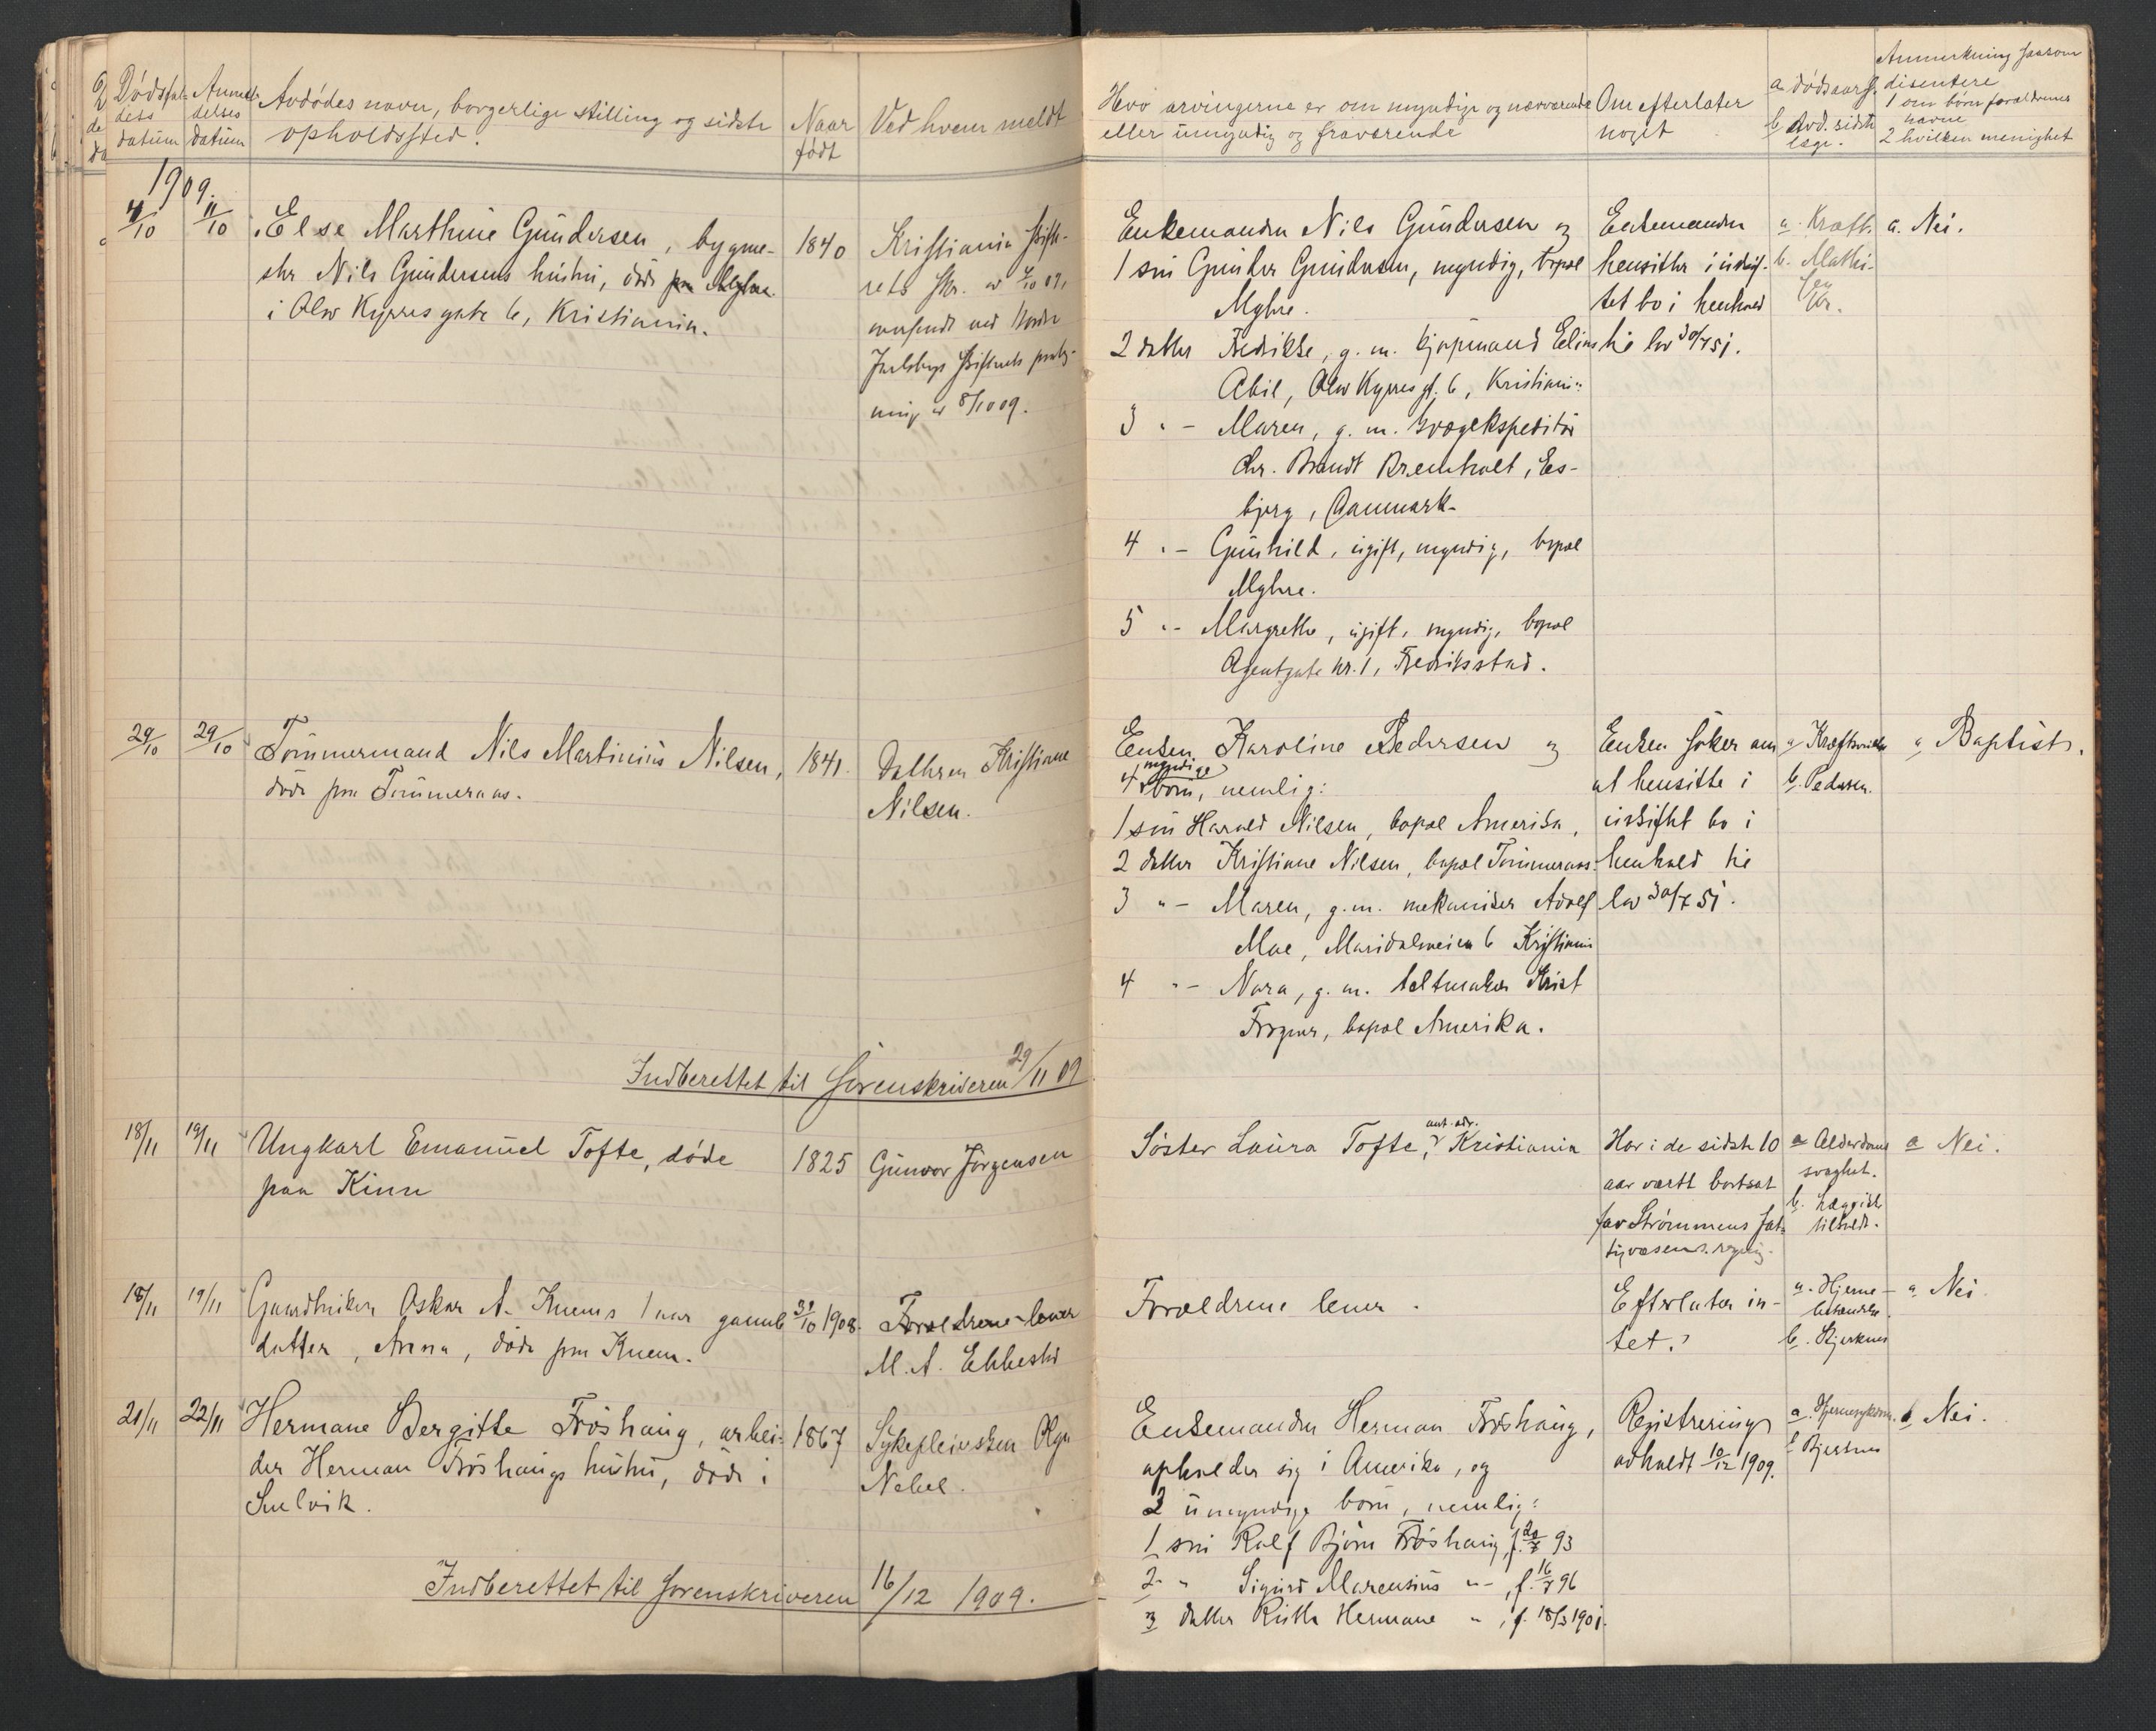 Dødsfal-
dets
datum
Anmel-
delses
datum
Avdødes navn, borgerlige stilling og sidste
opholdssted.
Naar
født
Ved hvem meldt
Hvo arvingerne er om myndige og nærværende
eller umyndig og fraværende
Om efterlater
noget
a. dødsaars.
b. Avd. sidste
læge.
Anmerkning saasom
disentere
1 om børn forældrenes
navne
2 hvilken menighet
1909.
4/10 11/10 Else Marthine Gundersen, bygme-
ster Nils Gundersens hustru, døde
i Olav Kyrres gate 6, Kristiania.
1840
Kristiania skifte-
rets skr. av 7/10 09,
oversendt ved Nordre
Jarlsbergs skifterets
av 8/10 09.
Enkemanden Nils Gundersen og
1 søn Gunder Gundersen, myndig, bopæl
Myhre.
2 datter Fredikke, g. m. kjøpmand Elias
Abil, Olav Kyrres gt. 6, Kristiania
3 " - Maren, g. m. godsekspeditør
Chr. Brandt Bremholt, Es-
bjerg, Danmark.
4 " - Gunhild, ugift, myndig, bopæl
Myhre.
5 " - Margrethe, ugift, myndig, bopæl
Agentgate nr. 1, Fredriksstad.
Enkemanden
hensitter i uskif-
tet bo i henhold
til lov 30/7 51.
a. Kræft.
b. Mathi-
sen
Kr.
a. Nei.
29/10 29/10 Tømmermand Nils Martinius Nilsen,
døde paa Tømmeraas.
1841.
Datteren Kristiane
Nilsen.
Enken Karoline Pedersen og
4 myndige børn, nemlig:
1 søn Harald Nilsen, bopæl Amerika,
2 datter Kristiane Nilsen, bopæl Tømmeraas.
3 " - Maren, g. m. mekaniker Adolf
Moe, Maridalsveien 6 Kristiania
4 " - Nora, g. m. teltmaker Krist
bopæl Amerika.
Enken søker om
at hensitte i
uskiftet bo i
henhold til
lov 30/7 51.
b. Pedersen.
a Baptist.
Indberettet til Sorenskriveren 29/11 09
18/11 19/11 Ungkarl Emanuel Tofte, døde
paa Kinn
1825
Gunvor Jørgensen
Søster Laura Tofte, ant. adr. ? Kristiania
Har i de sidste 10
aar været bortsat
for Strømmens fat-
tigvæsens regnig.
a Alderdoms
svaghet.
b. Lægyikke
tilkaldt.
a Nei.
18/11 19/11 Gaardbruker Oskar A. Knems 1 aar gamle
datter, Anna, døde paa Knem.
31/10 1908.
Forældrene lever
M. A. Ebbestad
Forældrene lever.
Efterlater in-
tet.
a. Hjerne-
betændelse
b. Bjerknes
a Nei
21/11 22/11 Hermane Bergitte Frøshaug, arbei-
der Herman Frøshaugs hustru, døde i
Svelvik.
1867
Sykepleiersken Olga
Nebel.
Enkemanden Herman Frøshaug,
opholder sig i Amerika, og
3 umyndige børn, nemlig:
1 søn Rolf Bjørn Frøshaug, f. 20/7 93
2 " Sigurd Marensius " -, f. 16/7 96
3 datter Ruth Hermane " , f. 18/3 1901.
Registrering
avholdt 10/12 1909.
a. Hjernesykdom.
b Bjerknes
b, Nei.
Indberettet til Sorenskriveren 16/12 1909.